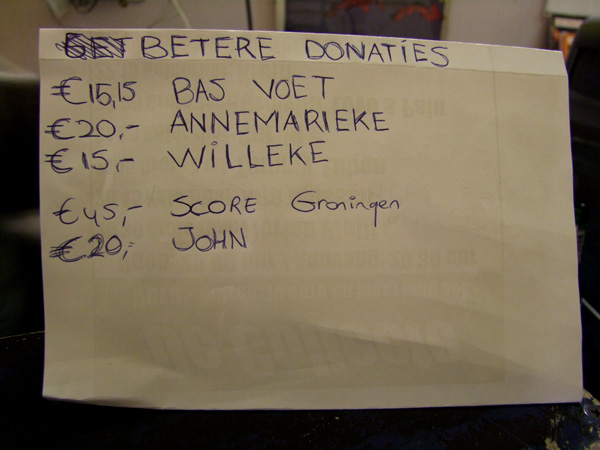 BETERE DONATIES
€15,15 BAS VOET
€20,- ANNEMARIEKE
€15,- WILLEKE
€45,- SCORE Groningen
€20,- JOHN